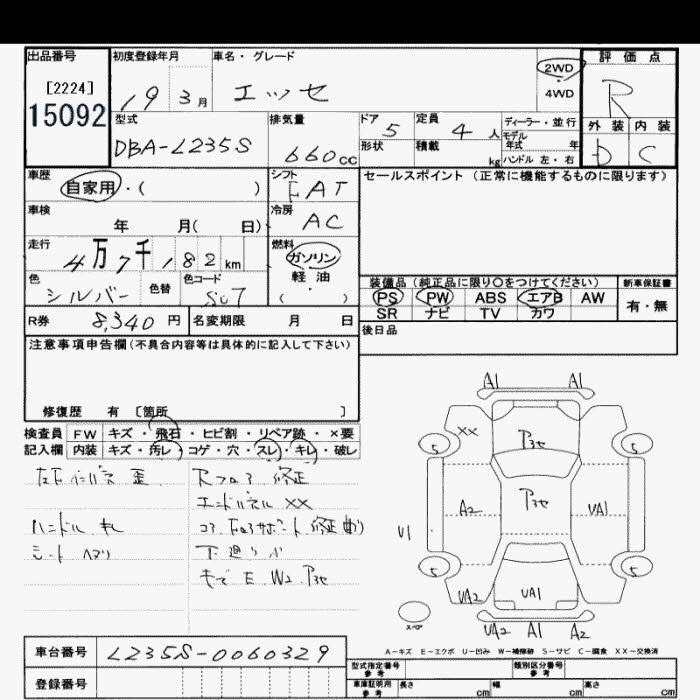 出品番号 初度登録年月 車名・グレード 2WD 評価点
[2224] 4WD R
15092 19 3月 エッセ
型式 排気量 ドア 定員 ディーラー・並行 外装 内装
DBA-L235S 660cc 5 4人 モデル年式 年 D C
形状 積載 kg ハンドル 左・右
車歴 シフト セールスポイント(正常に機能するものに限ります)
自家用・( ) FAT
車検 年 月( 日) 冷房 AC
走行 4万7千182km 燃料 ガソリン
軽・油
( )
色 シルバー 色替 色コード S07
装備品(純正品に限り○をつけてください) 新車保証書
PS PW ABS エアB AW 有・無
SR ナビ TV カワ
R券 8,340円 名変期限 月 日 後日品
注意事項申告欄(不具合内容等は具体的に記入して下さい)
修復歴 有 〔箇所 〕
検査員 FW キズ・飛石・ヒビ割・リペア跡・×要
記入欄 内装 キズ・汚レ・コゲ・穴・スレ・キレ・破レ
Rフロア 修正
エンドパネル XX
ハンドル キレ
シート ヘタリ
下廻り小
キズ E W2 P3セ
A1 A1
XX P3セ
5 5
A2 P3セ UA1
U1
5 5
UA2 UA1
スペア
UA2 A1 A2
A-キズ E-エクボ U-凹み W-補修跡 S-サビ C-腐食 XX-交換済
車台番号 L235S-0060329
登録番号
型式指定番号 参考 類別区分番号 参考
車庫証明用 参考 長さ cm 幅 cm 高さ cm